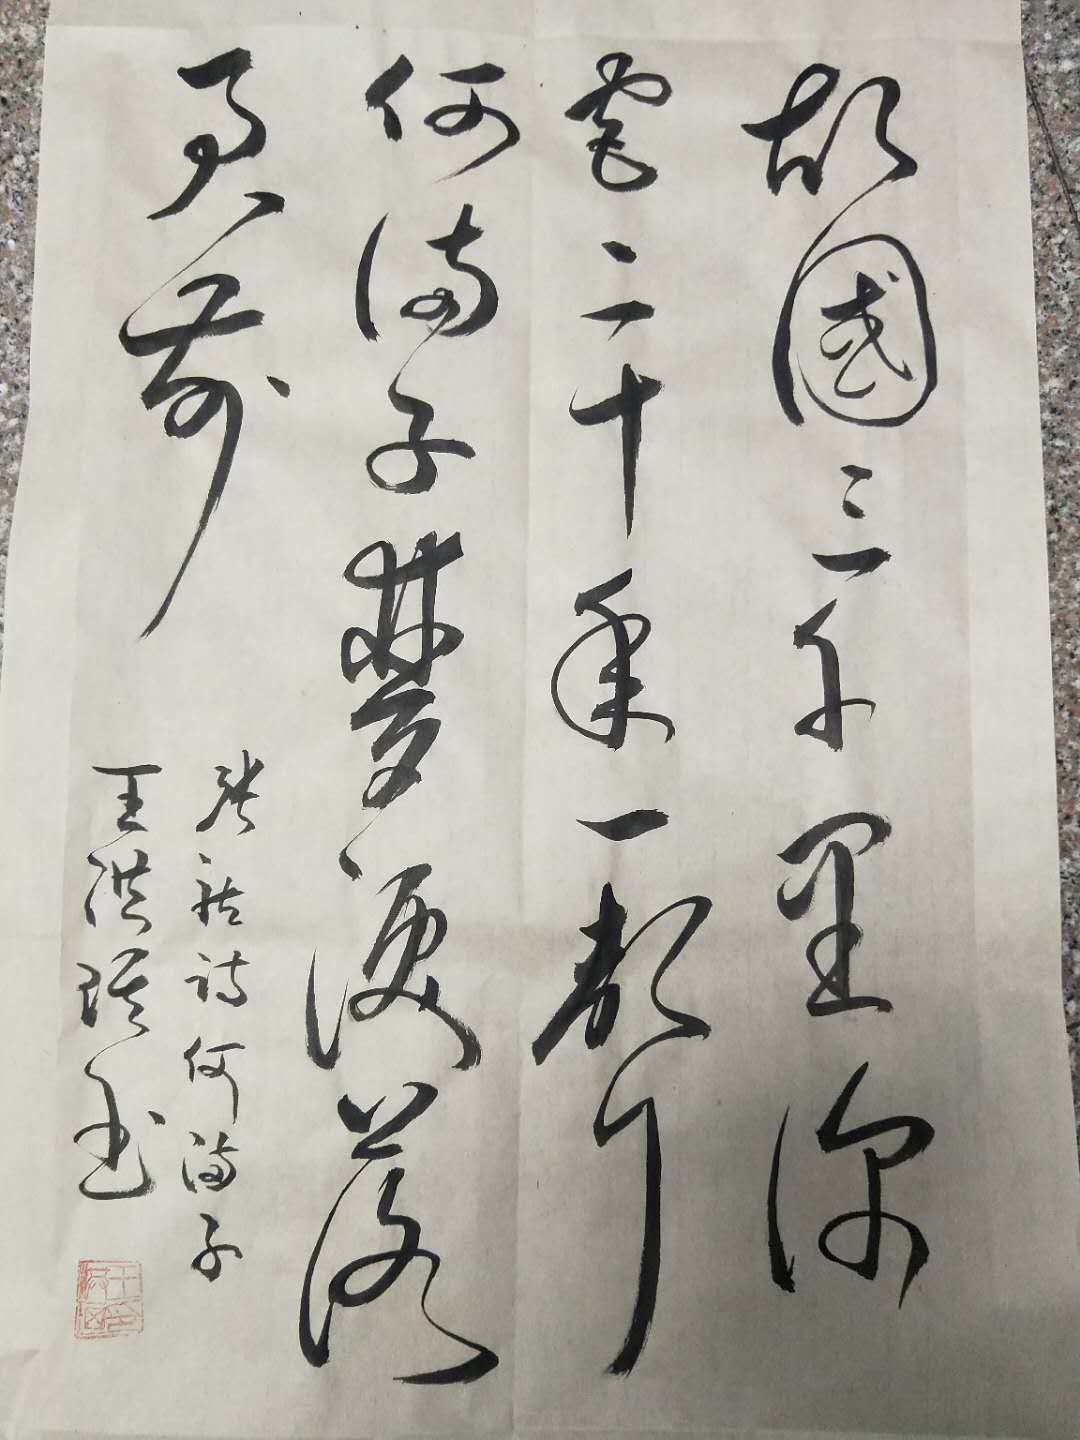 故國三千里深
宮二十年一聲
何滿子雙淚落
君前
張祜詩何滿子
王洪瑛书